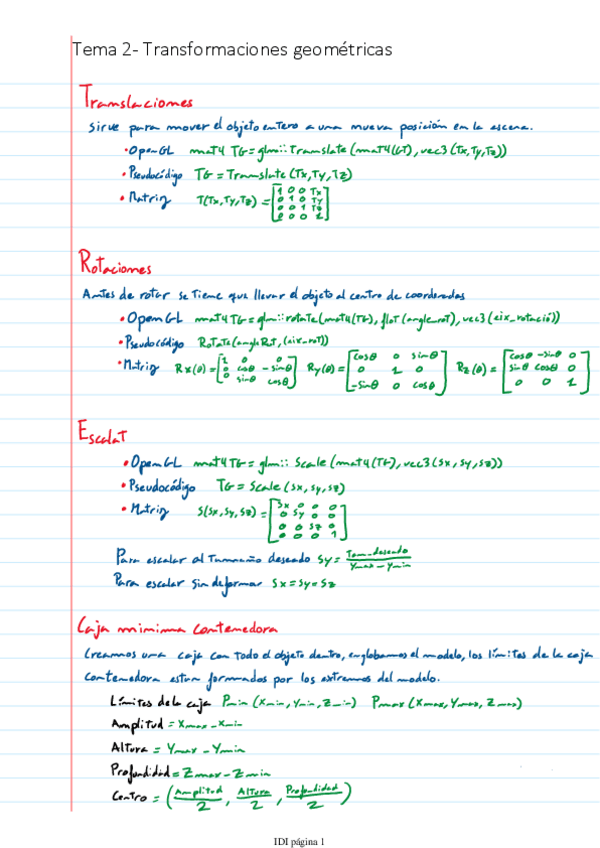 Tema 2- Transformaciones geométricas
Translaciones
Sirve para mover el objeto entero a una nueva posición en la escena.
• OpenGL mat4 TG = glm::Translate (mat4(GT), vec3 (Tx,Ty,Tz))
• Pseudocódigo TG = Translate (Tx,Ty,Tz)
• Matriz T(Tx,Ty,Tz) = [1 0 0 Tx
0 1 0 Ty
0 0 1 Tz
0 0 0 1]
Rotaciones
Antes de rotar se tiene que llevar el objeto al centro de coordenadas
• OpenGL mat4 TG = glm::rotate (mat4(TG), float (angle_rot), vec3 (eix_rotació))
• Pseudocódigo Rotate (angleRot, (eix_rot))
• Matriz Rx(θ) = [1 0 0
0 cosθ -sinθ
0 sinθ cosθ] Ry(θ) = [cosθ 0 sinθ
0 1 0
-sinθ 0 cosθ] Rz(θ) = [cosθ -sinθ 0
sinθ cosθ 0
0 0 1]
Escalat
• OpenGL mat4 TG = glm:: Scale (mat4(TG), vec3 (sx, sy, sz))
• Pseudocódigo TG = Scale (sx, sy, sz)
• Matriz S(sx, sy, sz) = [Sx 0 0 0
0 Sy 0 0
0 0 Sz 0
0 0 0 1]
Para escalar al Tammaño deseado sy = Tam_deseado / Ymax - Ymin
Para escalar sin deformar sx = sy = sz
Caja mimima contenedora
Creamos una caja con todo el objeto dentro, englobamos el modelo, los límites de la caja
contenedora estan formados por los extremos del modelo.
Límites de la caja Pmin (Xmin, Ymin, Zmin) Pmax (Xmax, Ymax, Zmax)
Amplitud = Xmax - Xmin
Altura = Ymax - Ymin
Profundidad = Zmax - Zmin
Centro = (Amplitud/2, Altura/2, Profundidad/2)
IDI página 1